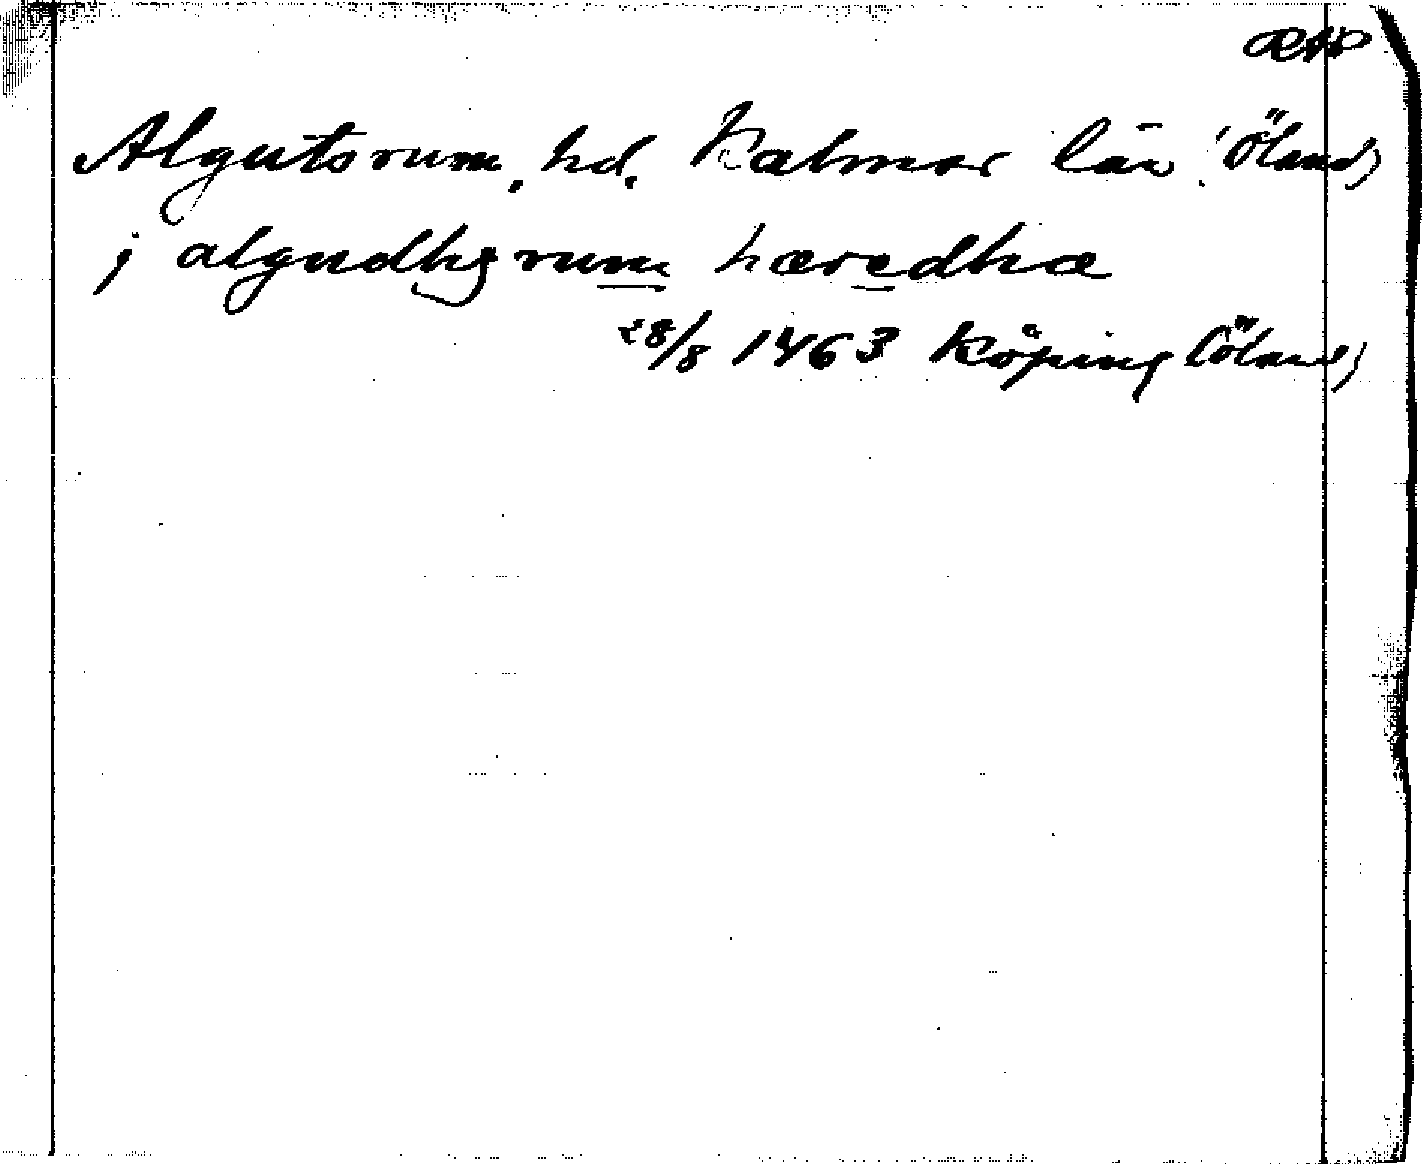 Algutsrum, hd. Kalmar län (Öland)
j algudhs rum hæredhæ
28/8 1463 Köping (Öland)